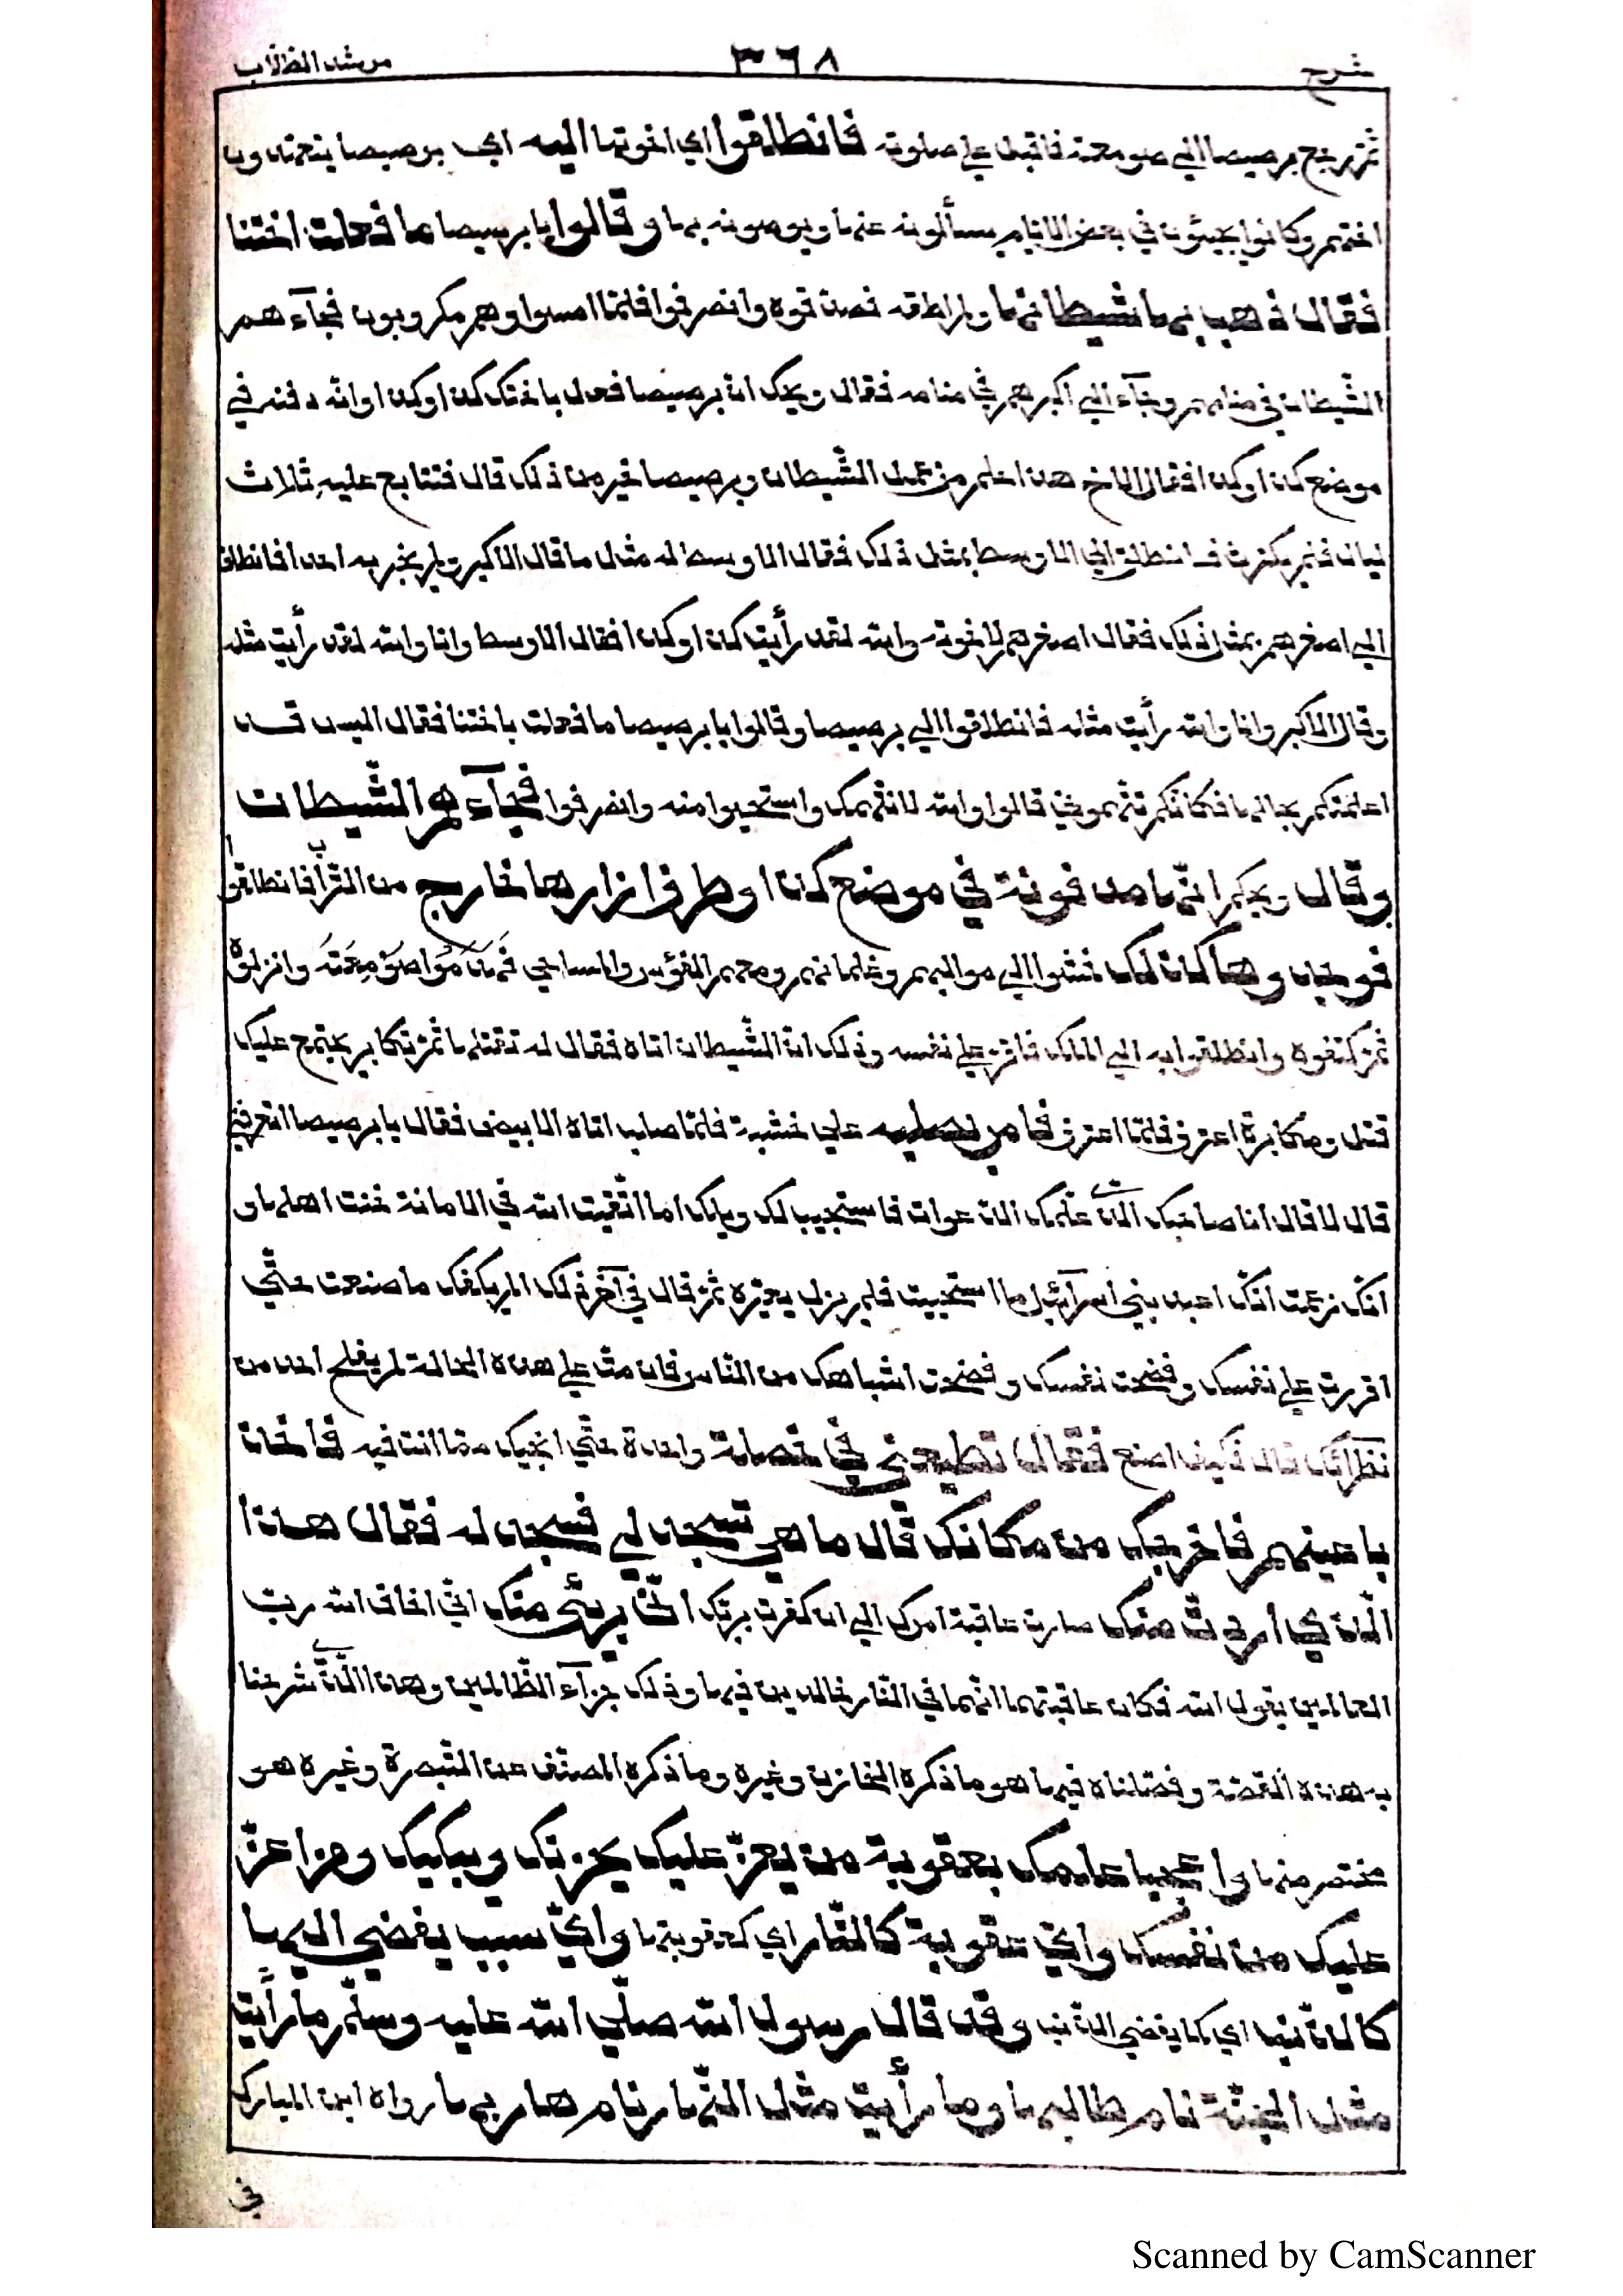 شرح ٣٦٨ مرشد الطلاب
ثم رجع برصيصا الي صومعته فاقبل علي صلوته فانطلقوا اي اخوتها اليه اي برصيصا يتعهدون
اختهم وكانوا يجيئون في بعض الايام يسألونه عنها ويوصونه بها وقالوا يا برصيصا ما فعلت اختنا
فقال ذهب بها شيطانها ولم اطقه فصدقوه وانصرفوا فلمّا امسوا وهم مكروبون فجآءهم
الشّيطان في منامهم وجآء الي اكبرهم في منامه فقال ويحك ان برصيصا فعل باختك كذا وكذا وانّه دفنه في
موضع كذا وكذا فقال الاخ هذا حلم من عمل الشّيطان وبرصيصا خير من ذلك قال فتتابع عليه ثلاث
ليال فلم يكترث فانطلق الي الاوسط بمثل ذلك فقال الاوسط له مثل ما قال الاكبر ولم يخبر به احدا فانطلق
الي اصغرهم بمثل ذلك فقال اصغرهم لاخوته والله لقد رأيت كذا وكذا فقال الاوسط وانا والله لقد رأيت مثله
وقال الاكبر وانا والله رأيت مثله فانطلقوا الي برصيصا وقالوا يا برصيصا ما فعلت باختنا فقال اليس قد
اعلمتكم بحالها فكانكم تتهموني قالوا والله لا نتهمك واستحيوا منه وانصرفوا فجآءهم الشّيطان
وقال ويحكم انّها مدفونة في موضع كذا وطرف ازارها خارج من التراب فانطلقوا
فوجدوها كذلك فمشوا الي مواليهم وغلمانهم ومعهم الفؤس والمساحي فهدموا صومعته وانزلوه
ثم كتفوه وانطلقوا به الي الملك فاقر علي نفسه وذلك ان الشّيطان اتاه فقال له تقتلها ثم تكابر يجتمع عليك
قتل ومكابرة اعترف فلمّا اعترف فامر بصلبه علي خشبة فلمّا صلب اتاه الابيض فقال يا برصيصا اتعرفني
قال لا قال انا صاحبك الذي علّمك الدعوات فاستجيب لك ويلك اما اتّقيت الله في الامانة خنت اهلها و
انّك زعمت انّك اعبد بني اسرآئيل اما استحييت فلم يزل يعيّره ثم قال في آخر ذلك الم يكفك ما صنعت حتّي
اقررت علي نفسك وفضحت نفسك وفضحت اشباهك من النّاس فان متّ علي هذه الحالة لم يفلح احد من
نظرآئك قال فكيف اصنع فقال تطيعني في خصلة واحدة حتّي انجيك ممّا انت فيه فآخذ
باعينهم فاخرجك من مكانك قال ما هي تسجد لي فسجد له فقال هذا
الّذي اردت منك صارت عاقبة امرك الي ان كفرت بربّك انّي برئ منك انّي اخاف الله ربّ
العالمين يقول الله فكان عاقبتهما انّهما في النار خالدين فيها وذلك جزآء الظّالمين وهذا الّذي شرحنا
به هذه القصّة وفصّلناه فيها هو ما ذكره الخازن وغيره وما ذكره المصنّف عن التّبصرة وغيره هو
مختصر منها واعجبا علمك بعقوبة من يعزّ عليك يحزنك ويبكيك ومن اعزّ
عليك من نفسك وايّ عقوبة كالنّار اي كعقوبتها وايّ سبب يفضي اليها
كالذّنب اي كما يفضي الذّنب وقد قال رسول الله صلّي الله عليه وسلّم ما رأيت
مثل الجنّة نام طالبها وما رأيت مثل النّار نام هاربها رواه ابن المبارك
في
Scanned by CamScanner